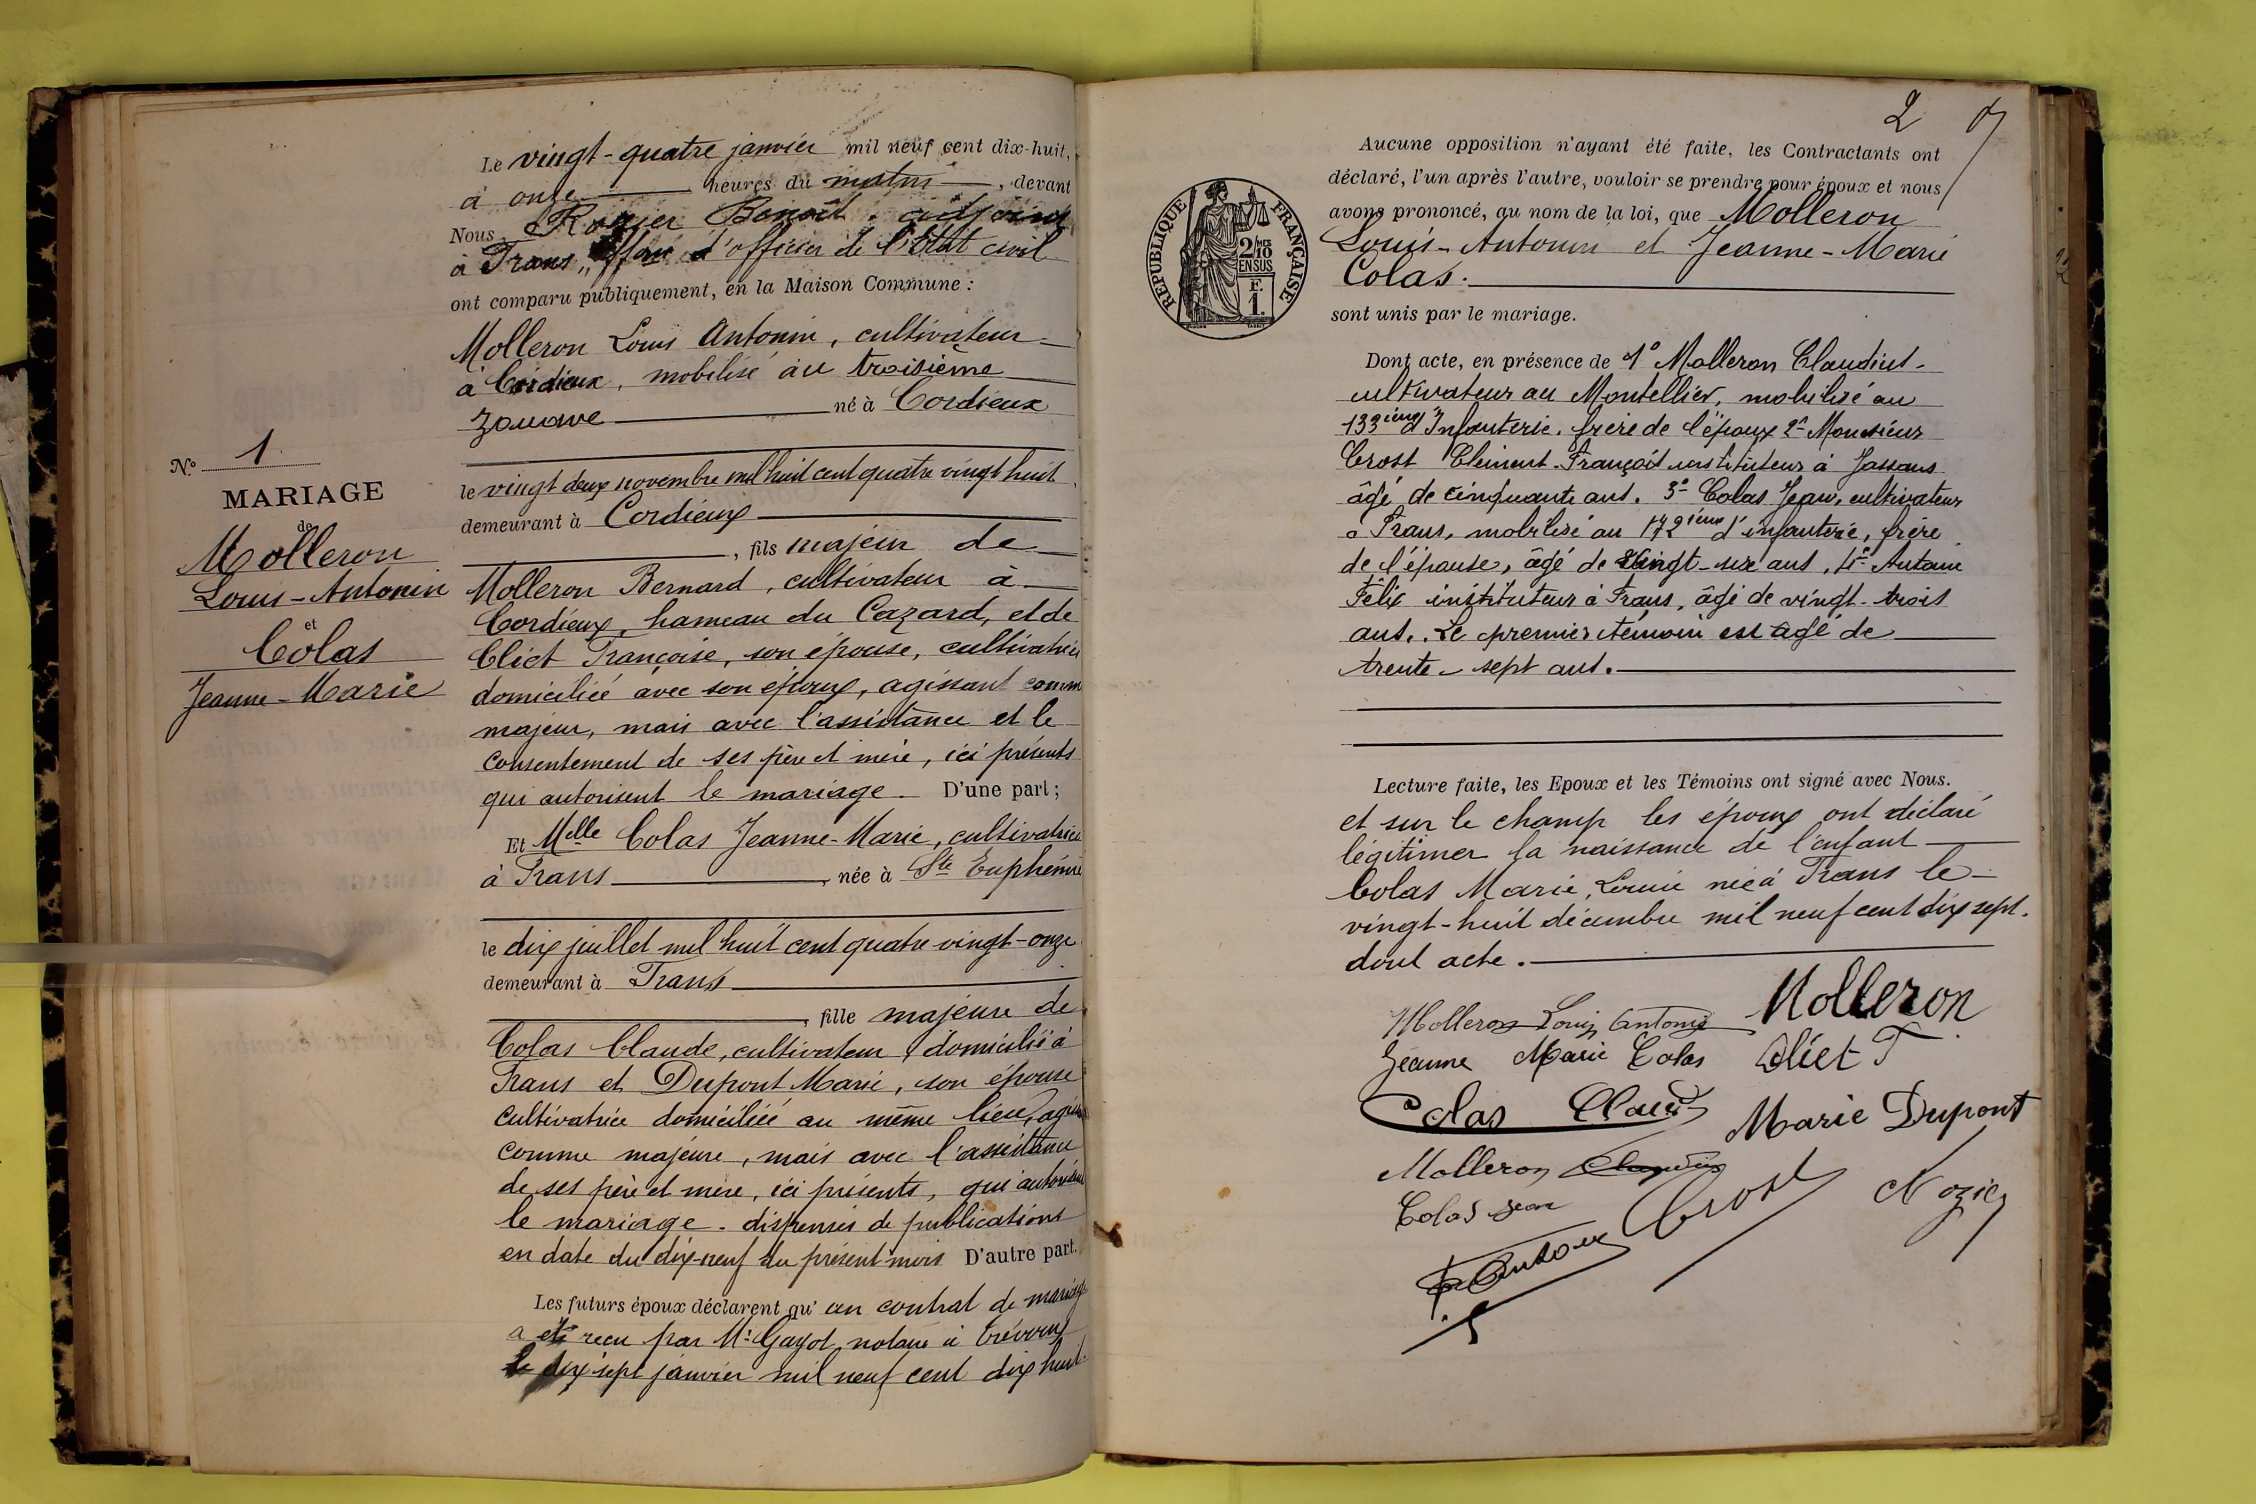 Le vingt-quatre janvier mil neuf cent dix-huit,
à onze heures du matin, devant
Nous Benoît, adjoint
à Trans, d'officier de l'état civil
ont comparu publiquement, en la Maison Commune :
Molleron Louis Antonin, cultivateur
à Cordieux, mobilisé au troisième
zouave né à Cordieux
le vingt deux novembre mil huit cent quatre vingt huit
demeurant à Cordieux
, fils majeur de
Molleron Bernard, cultivateur à
Cordieux, hameau du Cazard, et de
Cliet Françoise, son épouse, cultivatrice
domiciliée avec son époux, agissant comm
majeur, mais avec l'assistance et le
consentement de ses père et mère, ici présents
qui autorisent le mariage. D'une part ;
Et Melle Colas Jeanne-Marie, cultivatrice
à Trans, née à Ste Euphémie
le dix juillet mil huit cent quatre vingt-onze
demeurant à Trans
, fille majeure de
Colas Claude, cultivateur, domicilié à
Trans et Dupont Marie, son épouse
cultivatrice domiciliée au même lieu, agiss
comme majeure, mais avec l'assistance
de ses père et mère, ici présents, qui autorisent
le mariage. dispensés de publications
en date du dix-neuf du présent mois D'autre part.
Les futurs époux déclarent qu' un contrat de mariage
a été reçu par Me Gayot, notaire à Trévoux
le dix sept janvier mil neuf cent dix huit.
N° 1
MARIAGE
de
Molleron
Louis-Antonin
et
Colas
Jeanne-Marie
2
RÉPUBLIQUE FRANÇAISE
2/10
EN SUS
F.
1.
Aucune opposition n'ayant été faite, les Contractants ont
déclaré, l'un après l'autre, vouloir se prendre pour époux et nous
avons prononcé, au nom de la loi, que Molleron
Louis-Antonin et Jeanne-Marie
Colas.
sont unis par le mariage.
Dont acte, en présence de 1° Molleron Claudius
cultivateur au Montellier, mobilisé au
133ième d'Infanterie. frère de l'époux 2° Monsieur
Crost Clément-François instituteur à Jassans
âgé de cinquante ans. 3° Colas Jean, cultivateur
à Trans, mobilisé au 172ième d'infanterie, frère
de l'épouse, âgé de vingt-six ans, 4° Antoine
Félix instituteur à Trans, âgé de vingt-trois
ans. Le premier témoin est âgé de
trente-sept ans.
Lecture faite, les Epoux et les Témoins ont signé avec Nous.
et sur le champ les époux ont déclaré
légitimer la naissance de l'enfant
Colas Marie, Louise née à Trans le
vingt-huit décembre mil neuf cent dix sept.
dont acte.
Molleron Louis Antonin Molleron
Jeanne Marie Colas Cliet F
Colas Claude Marie Dupont
Molleron Claudius
Colas Jean Crost
F Antoine